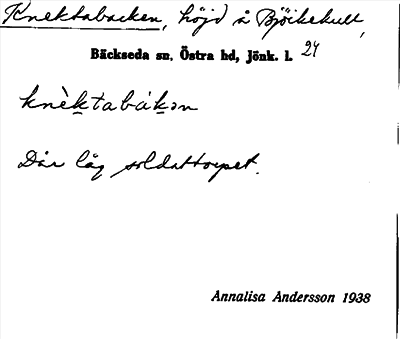 Knektabacken, höjd å Björkekull,
Bäckseda sn. Östra hd, Jönk. l. 24
knèktabákən
Där låg soldattorpet.
Annalisa Andersson 1938